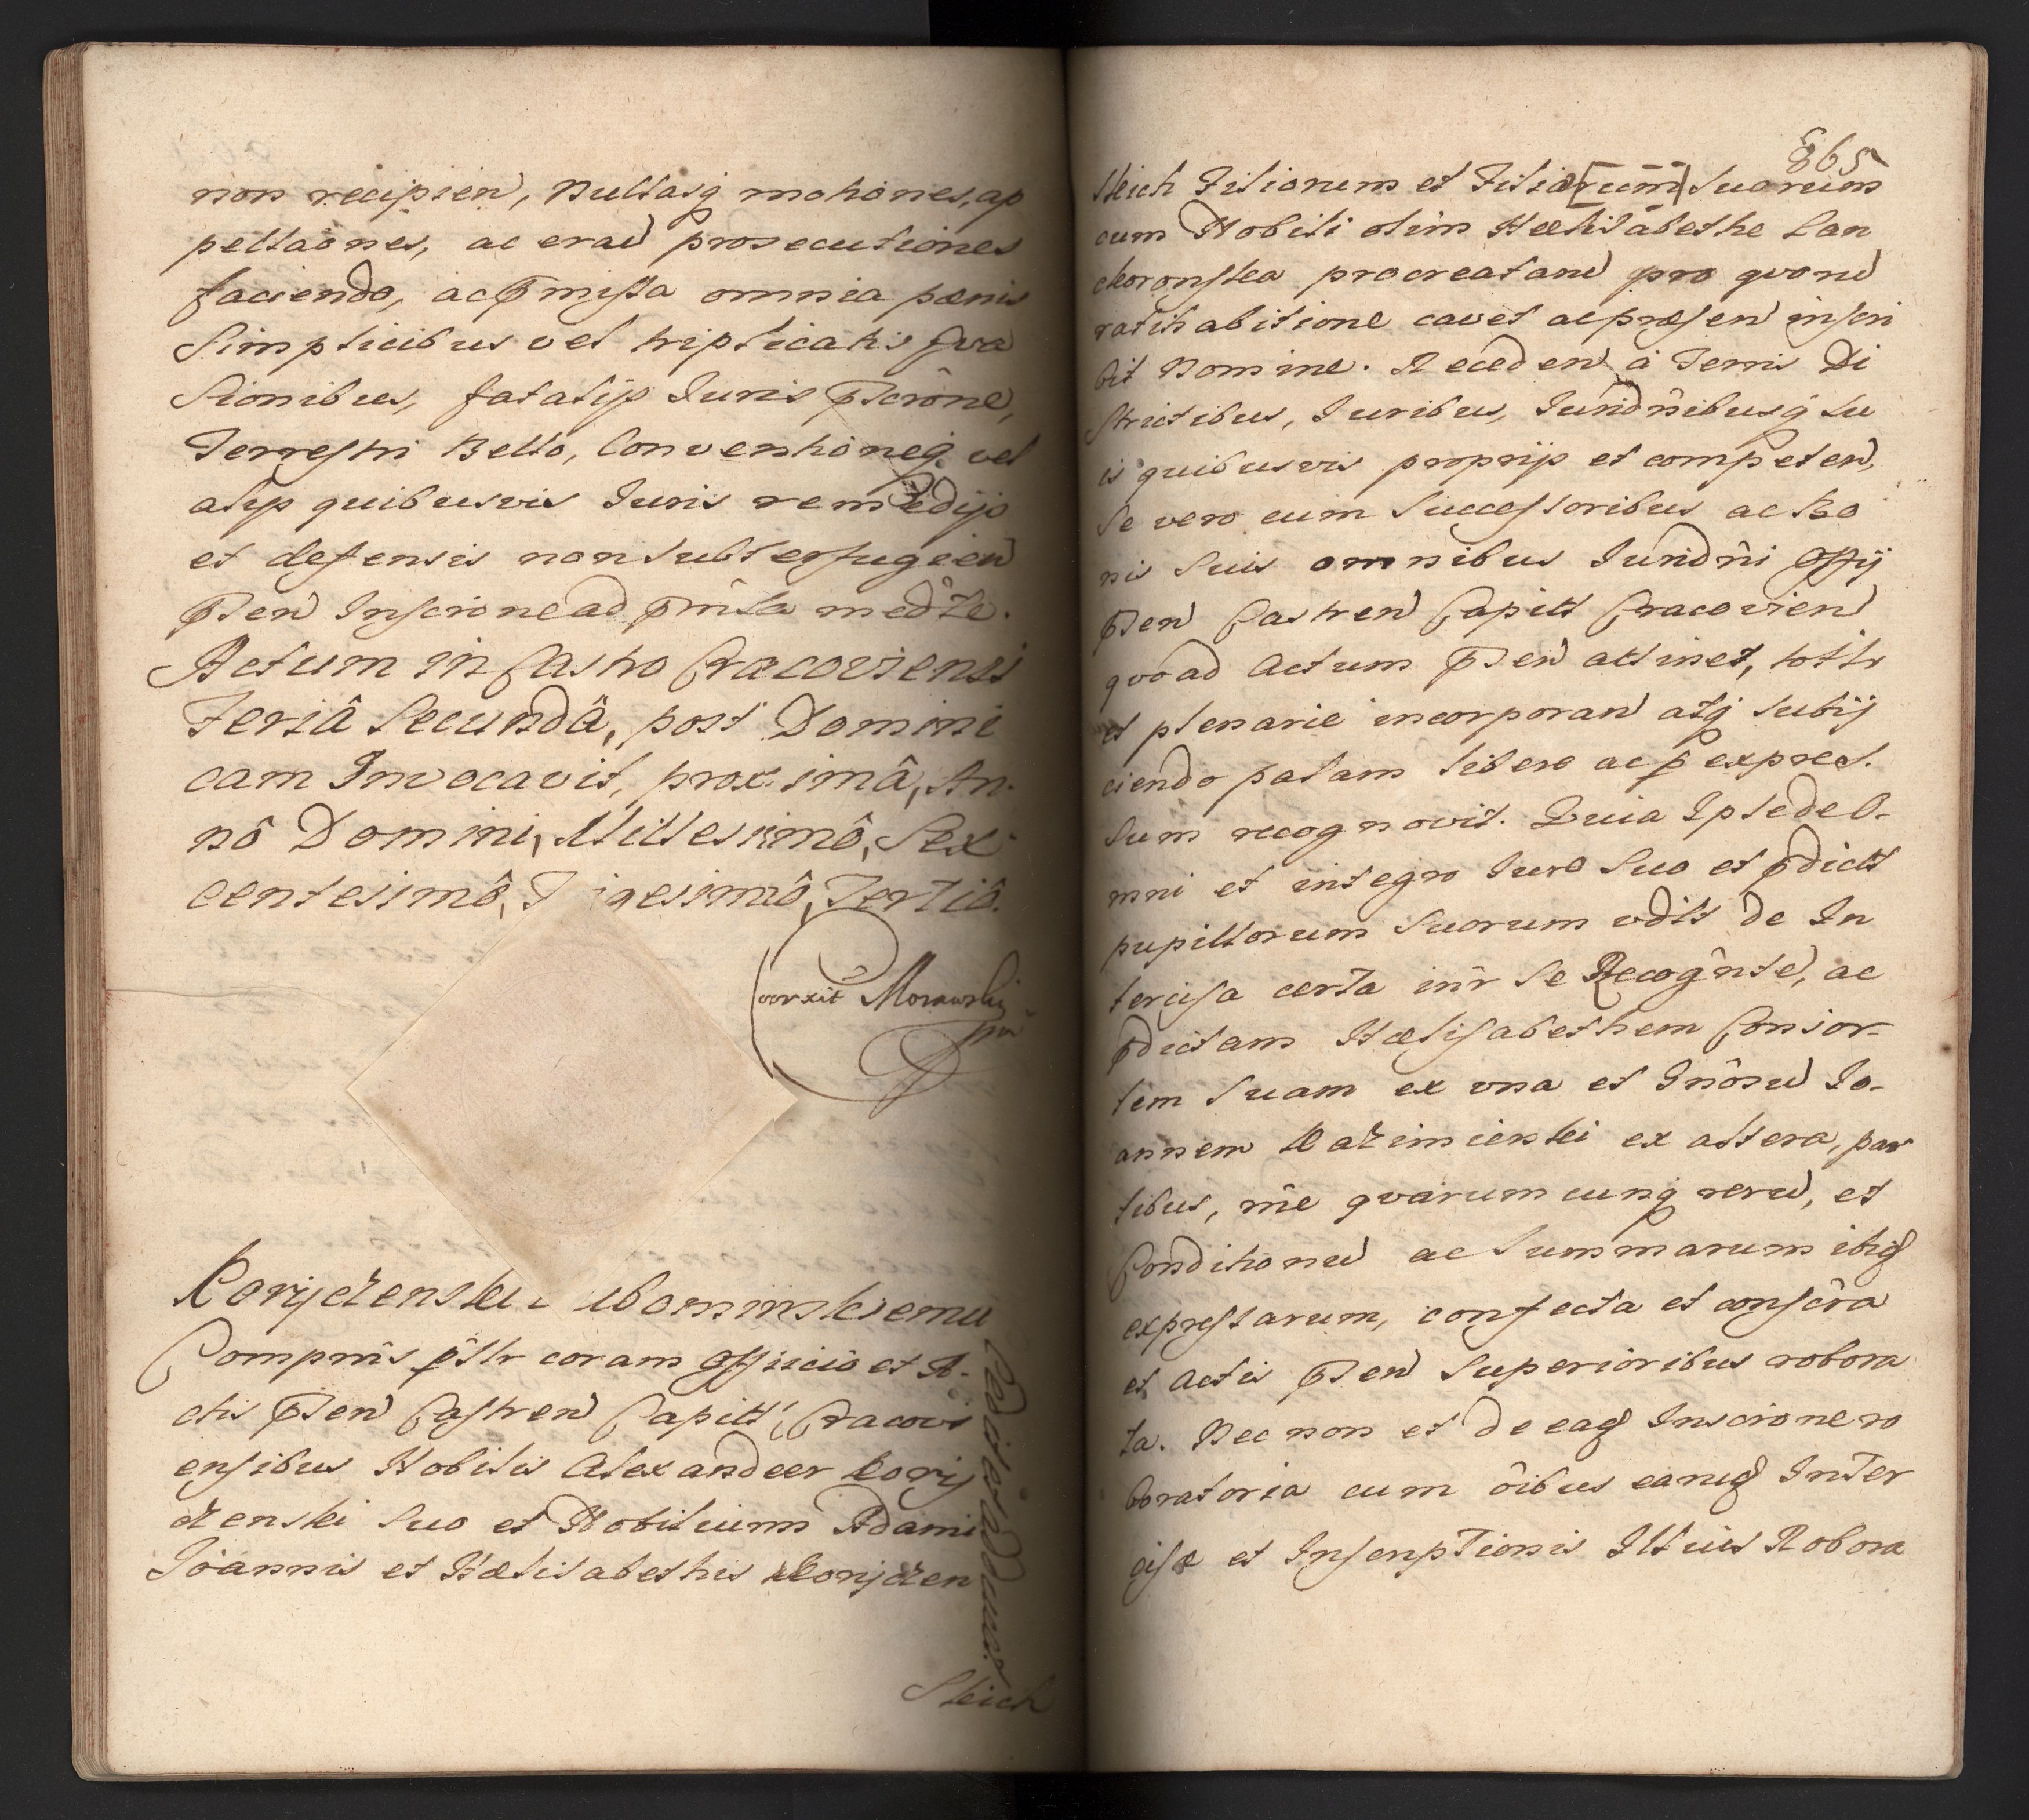 non recipien, Nullasq motiones, ap
pellaônes, ac eraru prosecutiones
faciendo, ac pmissa omnia pœnis
simplicibus vel triplicatis Eva
sionibus, fatalijs Iuris pscrône,
Terrestri Bello, Conventioneq vel
alijs quibusvis Iuris remedijs
et defensis non subterfugien
pñten Inscrione ad pmissa mediãte.
Actum in Castro Cracoviensi
Feriâ Secundâ, post Domini
cam Invocavit, proximâ, An-
nô Domini, Millesimô, Sex
centesimô, T igesimô, Tertiô.
Correxit Morawski
mp
Koryczenski ubominskiemu
Compñs pslr coram Officio et A-
ctis pñten Castren Capitt Cracovi
ensibus Nobilis Alexandeer Kory
czenski Suo et Nobilium Adami
Joannis et Hælisabethis Koryczen
Cedit et addauit
Skich
865
skich Filiorum et Filia[rum] Suorum
cum Nobili olim Hælisabethe Lan
ckoronska procreataru pro quoru
ratihabitione cavet ac præsen inscri
bit Nomine. Receden à Terris Di
strictibus, Iuribus, Iuridñibusq su
is quibusvis proprijs et competen,
Se vero cum Successoribus ac Bo
nis Suis omnibus Iuridñi Offij
pñten Castren Capitt Cracovien
quoad Actum pñten attinet, totlr
et plenarie incorporan atq subij
ciendo palam libere ac p expres.
sum recognovit. Quia Ipse de O-
mni et integro Iure Suo et pdictt
pupillorum Suorum vdlt de In
tercisa certa inr Se Recogñte, ac
pdictam Hælisabethem Consor-
tem Suam ex una et Gñosu Io-
annem Kazimienski ex altera, par
tibus, rñe quarumcunq reru, et
Conditionu ac Summarum ibid
expressarum, confecta et conscrã
et Actis pñten Superioribus robora
ta. Nec non et de ead Inscrione ro
boratoria cum oîbus earud Inter
cisæ et Inscriptionis Illius Robora